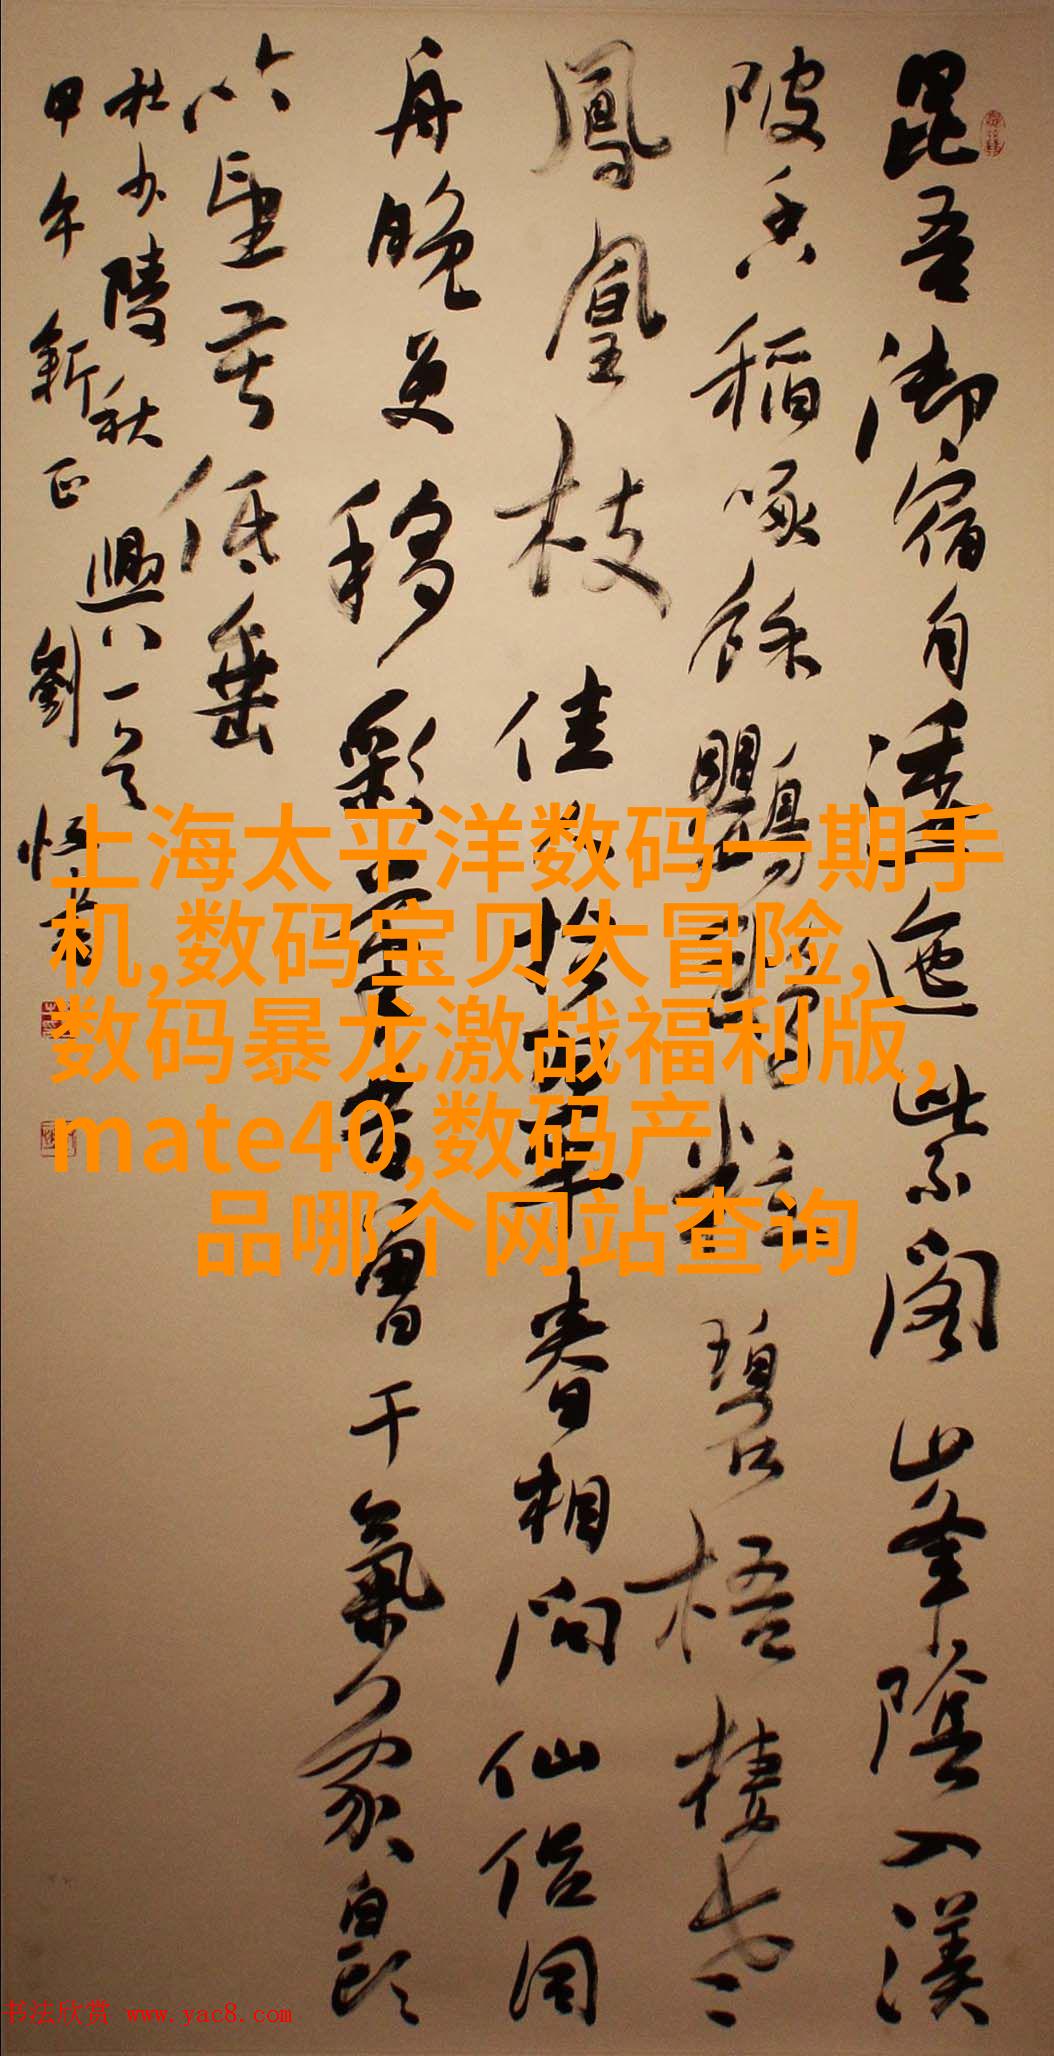 昆吾御宿自逶迤紫閣峯陰入渼
陂香稻啄餘鸚鵡粒碧梧棲老
鳳凰枝佳人拾翠春相問仙侶同
舟晚更移彩筆昔曾干氣象白頭
吟望苦低垂
杜少陵秋興八一
甲午新正劉恒書
上海太平洋数码一期手
机,数码宝贝大冒险,
数码暴龙激战福利版,
mate40,数码产
品哪个网站查询
书法欣赏 www.yac8.com